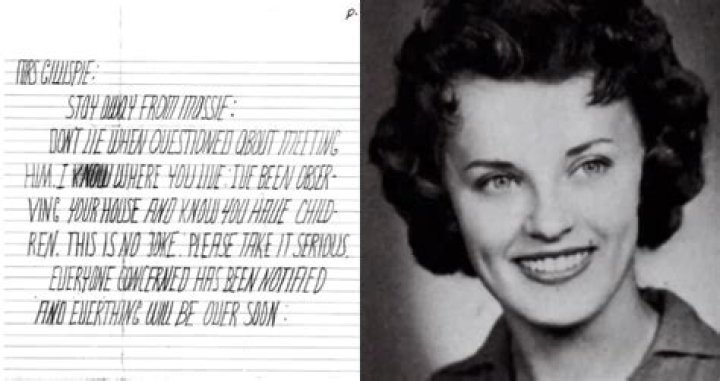 P.
MRS GILLISPIE:
STAY AWAY FROM MASSIE:
DON'T LIE WHEN QUESTIONED ABOUT MEETING
HIM. I KNOW WHERE YOU LIVE: I'VE BEEN OBSER-
VING YOUR HOUSE AND KNOW YOU HAVE CHILD-
REN. THIS IS NO JOKE. PLEASE TAKE IT SERIOUS.
EVERYONE CONCERNED HAS BEEN NOTIFIED
AND EVERTHING WILL BE OVER SOON: